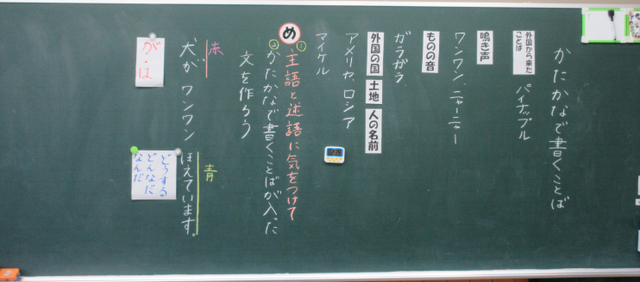 かたかなで書くことば
外国から来た
ことば
パイナップル
鳴き声
ワンワン、ニャーニャー
ものの音
ガラガラ
外国の国 土地 人の名前
アメリカ、ロシア
マイケル
め
①主語と述語に気をつけて
②かたかなで書くことばが入った
文を作ろう
赤
青
犬が ワンワン ほえています。
が・は
どうする
どんなだ
なんだ